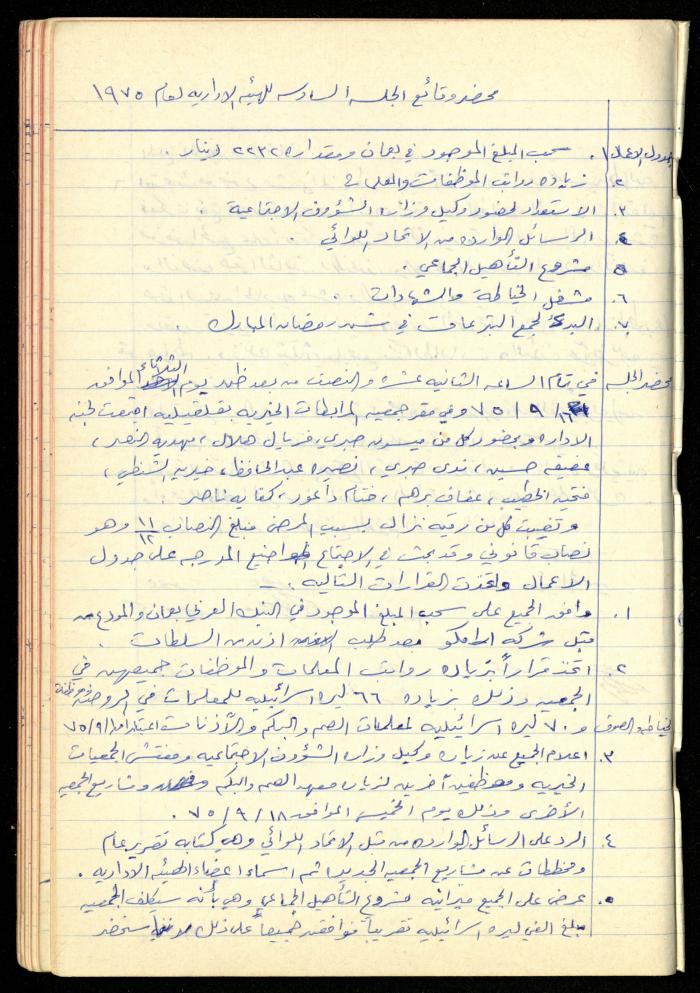 محضر وقائع الجلسة السادسة للهيئة الادارية لعام ١٩٧٥
جدول الاعمال ١. سحب المبلغ الموجود في بعمان ومقداره ٢٢٣٢ دينار .
٢. زيادة رواتب الموظفات والمعلمات
٣. الاستعداد لحضور وكيل وزارة الشؤون الاجتماعية .
٤. الرسائل الواردة من الاتحاد اللوائي .
٥. مشروع التأهيل الجماعي .
٦. مشغل الخياطة والشهادات .
٧. البدء لجمع التبرعات في شهر رمضان المبارك .
محضر الجلسة في تمام الساعة الثانية عشرة والنصف من بعد ظهر يوم الثلاثاء الموافق
١٦/٩/٧٥ وفي مقر جمعية المرابطات الخيرية بقلقيلية اجتمعت لجنة
الادارة وبحضور كل من ميسون صبري، فريال هلال، مهدية النصر،
عفيفة حسين، ندى صبري، نصيره عبد الحافظ، خيرية الشنطي،
فتحية الخطيب، عفاف برهم، ختام داعور، كفاية ناصر .
وتغيبت كل من رقية نزال بسبب المرض فبلغ النصاب ١١/١٢ وهو
نصاب قانوني وقد بحثت في الاجتماع المواضيع المدرجة على جدول
الاعمال واتخذت القرارات التالية :-
١. وافق الجميع على سحب المبلغ الموجود في البنك العربي بعمان والمودع من
قبل شركة ارامكو بعد طلب اذن من السلطات .
٢. اتخذ قراراً بزيادة رواتب المعلمات والموظفات جميعهن في
الجمعية وذلك بزيادة ٦٦ ليرة اسرائيلية للمعلمات في الروضة وموظفة
الخياطة والصوف و ٧٠ ليرة اسرائيلية لمعلمات الصم والبكم والآذنات اعتبارا من ١/٩/٧٥
٣. اعلام الجميع عن زيارة وكيل وزارة الشؤون الاجتماعية ومفتش الجمعيات
الخيرية وموظفين آخرين لزيارة معهد الصم والبكم ومشاريع الجمعية
الأخرى وذلك يوم الخميس الموافق ١٨/٩/٧٥ .
٤. الرد على الرسائل الواردة من قبل الاتحاد اللوائي وهي كتابة تقرير عام
ومخططات عن مشاريع الجمعية الجديدة ثم اسماء اعضاء الهيئة الادارية .
٥. عرض على الجميع ميزانية مشروع التأهيل الجماعي وهي بأنه سيكلف الجمعية
مبلغ الفي ليرة اسرائيلية تقريباً فوافقن جميعاً على ذلك سنحضر